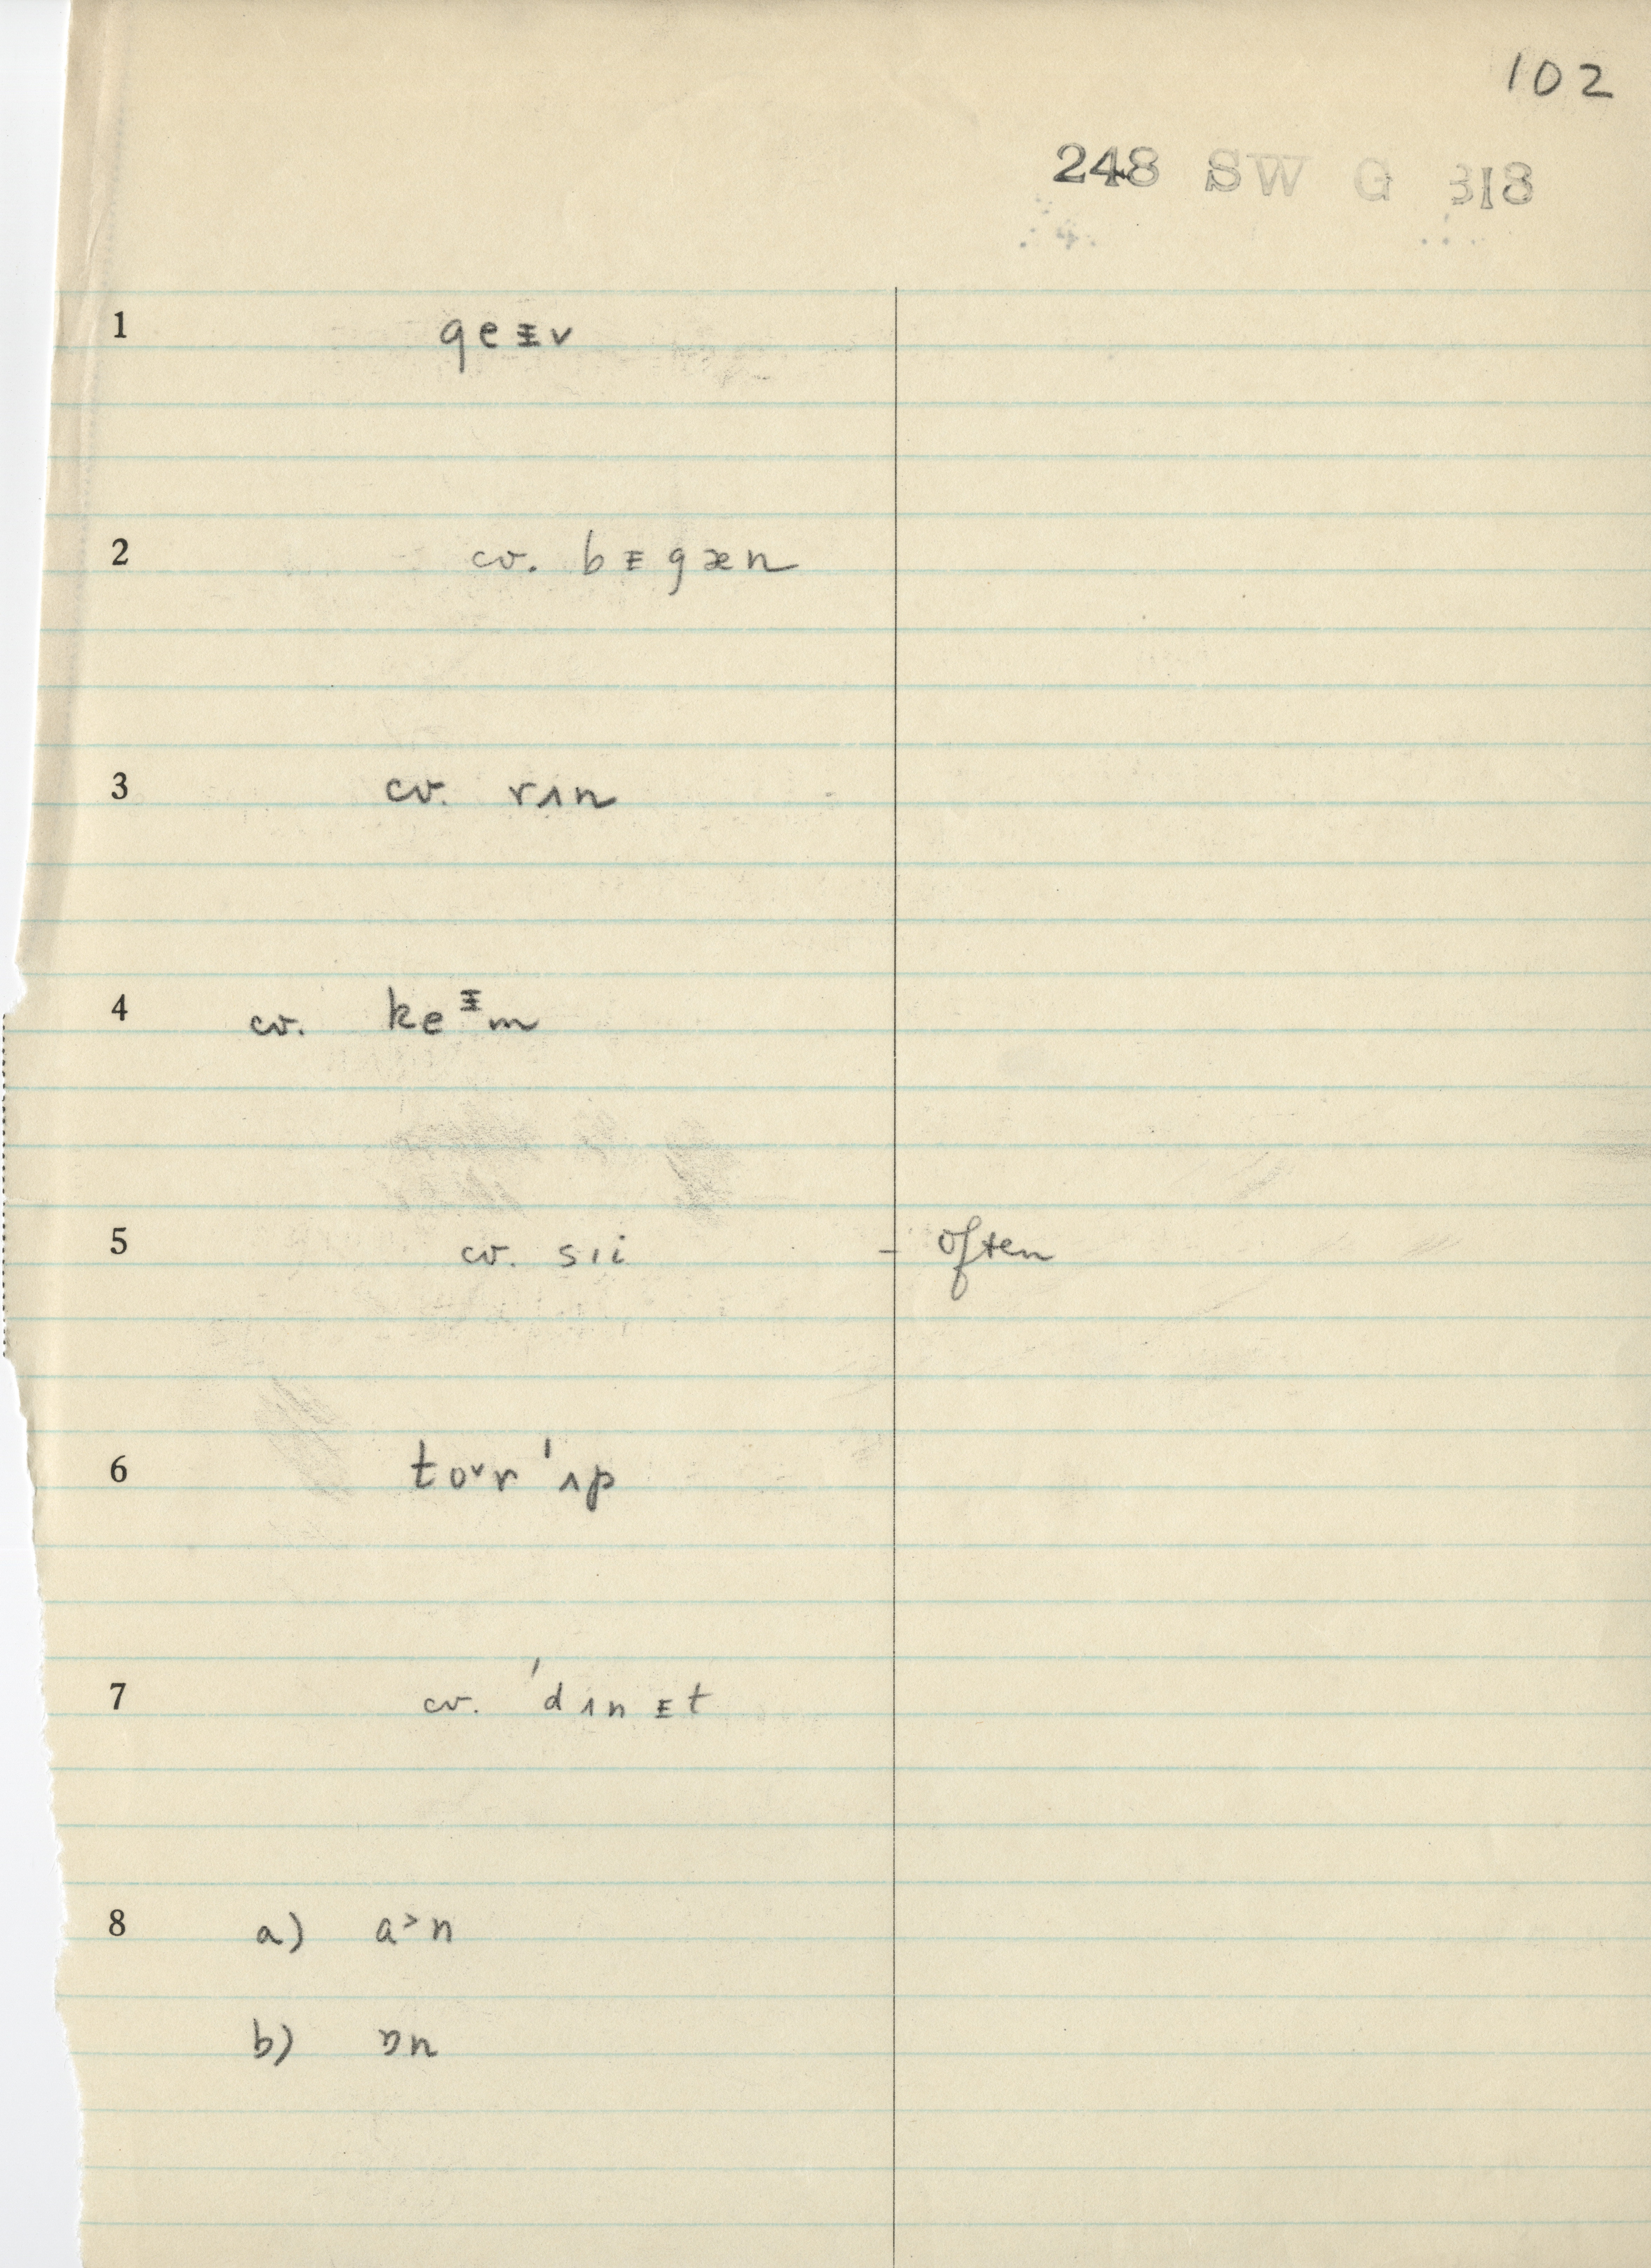 102
248 SW G 318
1 geɪ̵v
2 cv. bɪ̵gæn
3 cv. rʌn
4 cv. keᵻm
5 cv. sɪi - often
6 toᵛr ˈʌp
7 cv. ˈdʌnɪ̵t
8 a) a˃n
b) ɒn